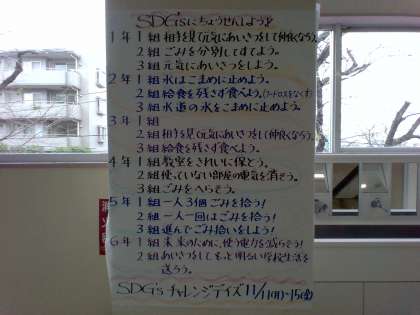 SDG'sにちょうせんしよう!
1年 1組 相手を見て元気にあいさつをして仲良くなろう。
2組 ごみを分別してすてよう。
3組 元気にあいさつをしよう。
2年 1組 水はこまめに止めよう。
2組 給食を残さず食べよう。(フードロスをなくす)
3組 水道の水をこまめに止めよう。
3年 1組
2組 相手を見て元気にあいさつをして仲良くなろう。
3組 給食を残さず食べよう。
4年 1組 教室をきれいに保とう。
2組 使っていない部屋の電気を消そう。
3組 ごみをへらそう。
5年 1組 一人3個ごみを拾う!
2組 一人一回はごみを拾う!
3組 進んでごみ拾いをしよう!
6年 1組 未来のために、使う電力を減らそう!
2組 あいさつをしてもっと明るい学校生活を
送ろう。
SDG'sチャレンジデイズ 11/11(月)~15(金)